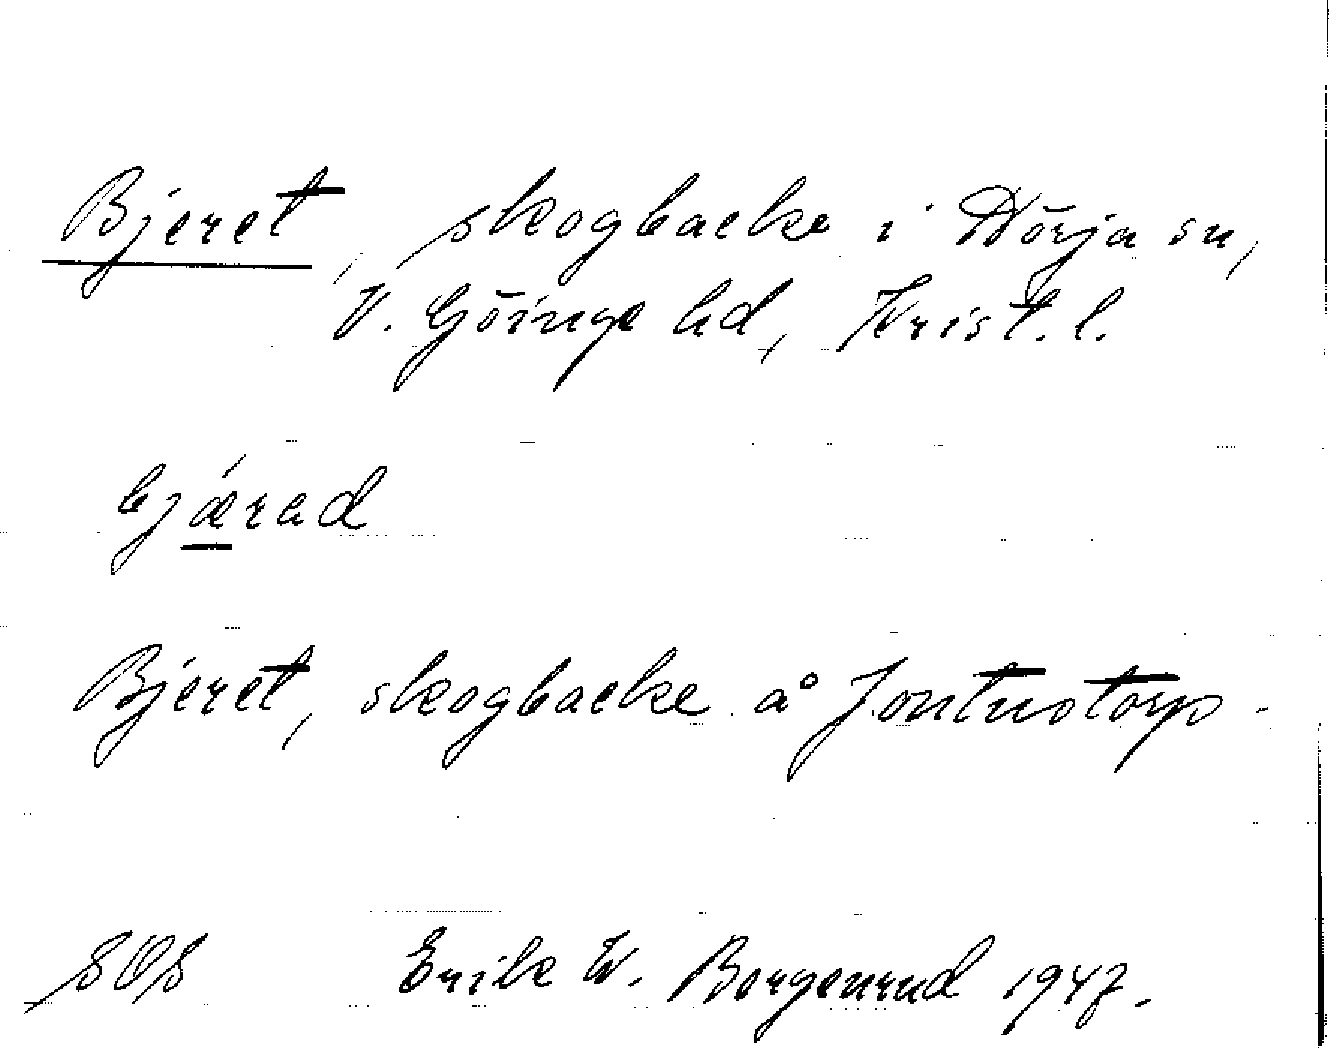 Bjeret, skogbacke i Nörja sn,
V. Göinge hd, Krist. l.
bjærad
Bjeret, skogbacke å Jontustorp.
SOS Erik W. Borgenrud 1947.